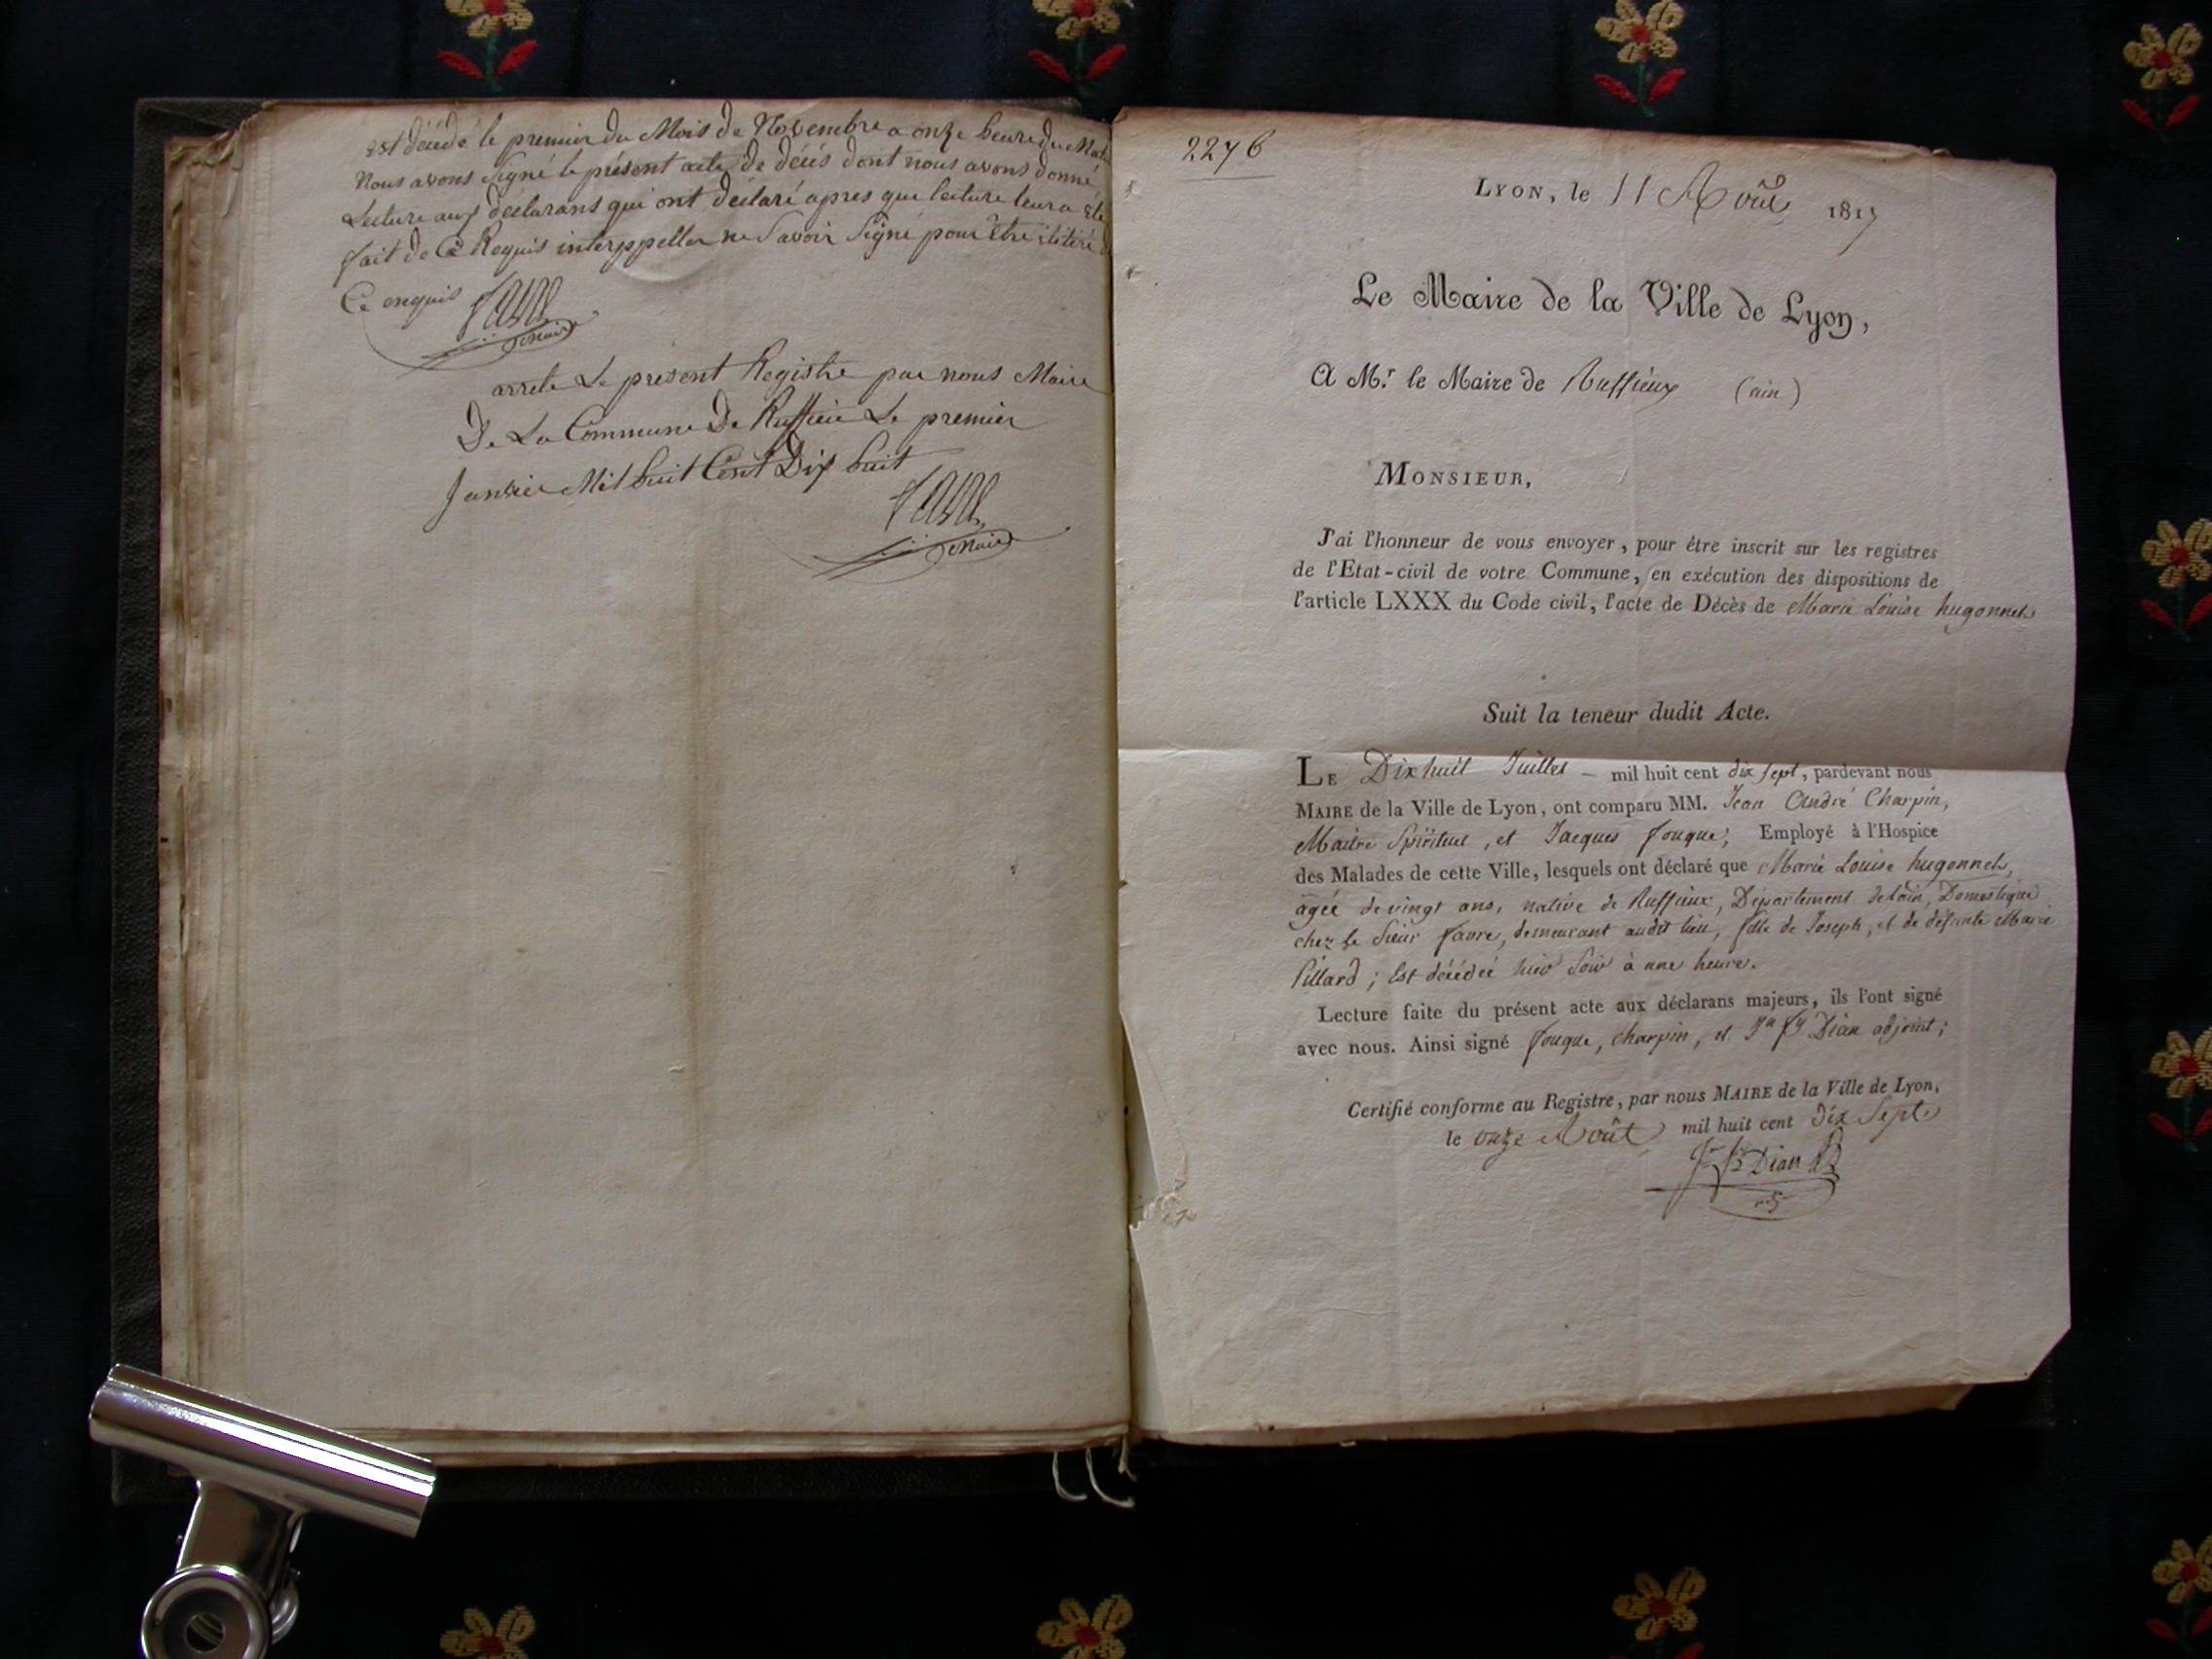 est décédé le premier du Mois de Novembre a onze heure du Matin
Nous avons Signé le présent acte de décés dont nous avons donné
Lecture aux déclarans qui ont déclaré apres que lecture leur a été
fait de Ce Requis interppeller ne Savoir Signé pour être
Ce enquis
Maire
arrete Le present Registre par nous Maire
De La Commune De Ruffieu Le premier
Janvier Mil huit Cent Dix huit
Maire
2276
LYON, le 11 Août 1817
Le Maire de la Ville de Lyon,
A M.r le Maire de Ruffieux (ain)
MONSIEUR,
J'ai l'honneur de vous envoyer, pour être inscrit sur les registres
de l'Etat-civil de votre Commune, en exécution des dispositions de
l'article LXXX du Code civil, l'acte de Décès de Marie Louise hugonnet
Suit la teneur dudit Acte.
LE Dixhuit Juillet — mil huit cent dix sept, pardevant nous
MAIRE de la Ville de Lyon, ont comparu MM. Jean André Charpin,
Maitre Spirituel, et Jacques fouque; Employé à l'Hospice
des Malades de cette Ville, lesquels ont déclaré que Marie Louise hugonnet,
agée de vingt ans, native de Ruffieux, Département de lain, Domestique
chez le Sieur favre, demeurant audit lieu, fille de Joseph, et de défunte Marie
Pillard; Est décédée hier Soir à une heure.
Lecture faite du présent acte aux déclarans majeurs, ils l'ont signé
avec nous. Ainsi signé fouque, charpin, et Jn fs Dian adjoint;
Certifié conforme au Registre, par nous MAIRE de la Ville de Lyon,
le onze Août mil huit cent dix Sept
Dian